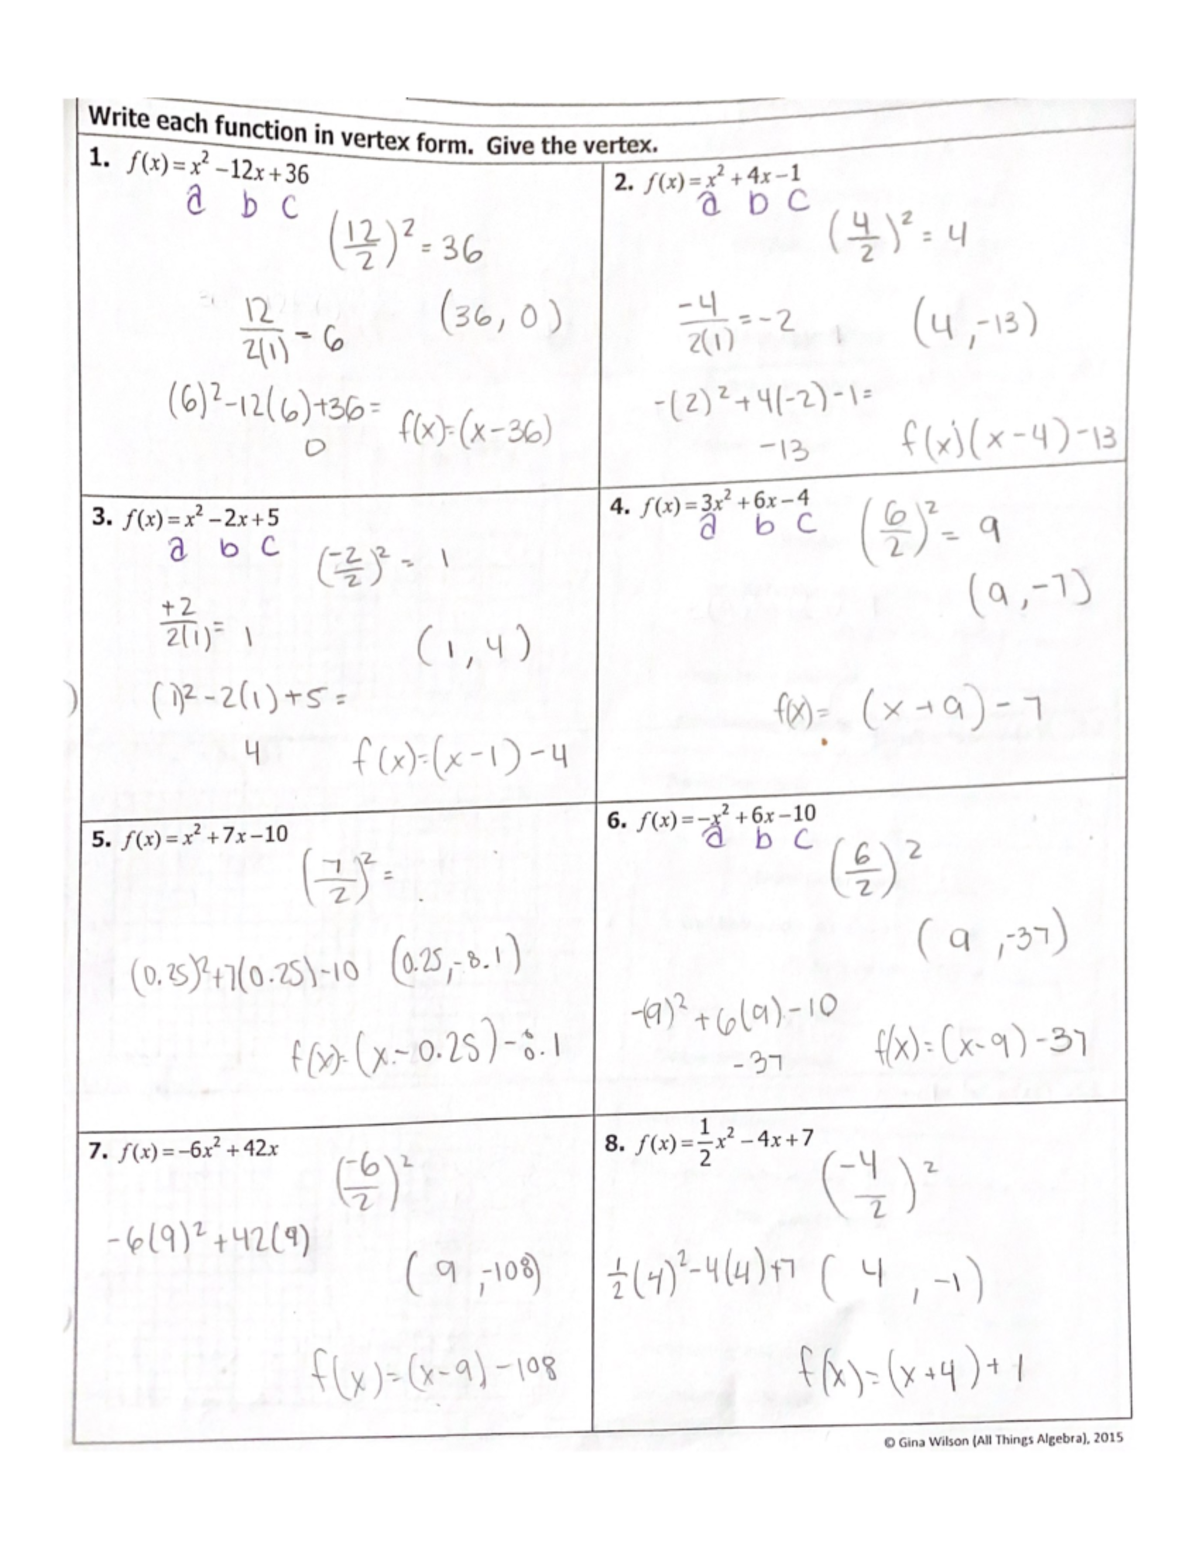 Write each function in vertex form. Give the vertex.
1. f(x) = x² – 12x + 36
a b c
(12/2)² = 36
12/2(1) = 6
(36, 0)
(6)² - 12(6) + 36 =
0
f(x) = (x - 36)
2. f(x) = x² + 4x – 1
a b c
(4/2)² = 4
-4/2(1) = -2
(4, -13)
-(2)² + 4(-2) - 1 =
-13
f(x) (x - 4) - 13
3. f(x) = x² – 2x + 5
a b c
(-2/2)² = 1
+2/2(1) = 1
(1, 4)
(1)² - 2(1) + 5 =
4
f(x) = (x - 1) - 4
4. f(x) = 3x² + 6x – 4
a b c
(6/2)² = 9
(9, -7)
f(x) = (x + 9) - 7
5. f(x) = x² + 7x – 10
(7/2)² =
(0.25)² + 7(0.25) - 10
(0.25, -8.1)
f(x) = (x - 0.25) - 8.1
6. f(x) = –x² + 6x – 10
a b c
(6/2)²
(9, -37)
-(9)² + 6(9) - 10
-37
f(x) = (x - 9) - 37
7. f(x) = –6x² + 42x
(-6/2)²
-6(9)² + 42(9)
(9, -108)
f(x) = (x - 9) - 108
8. f(x) = 1/2 x² – 4x + 7
(-4/2)²
1/2(4)² - 4(4) + 7
(4, -1)
f(x) = (x + 4) + 1
© Gina Wilson (All Things Algebra), 2015